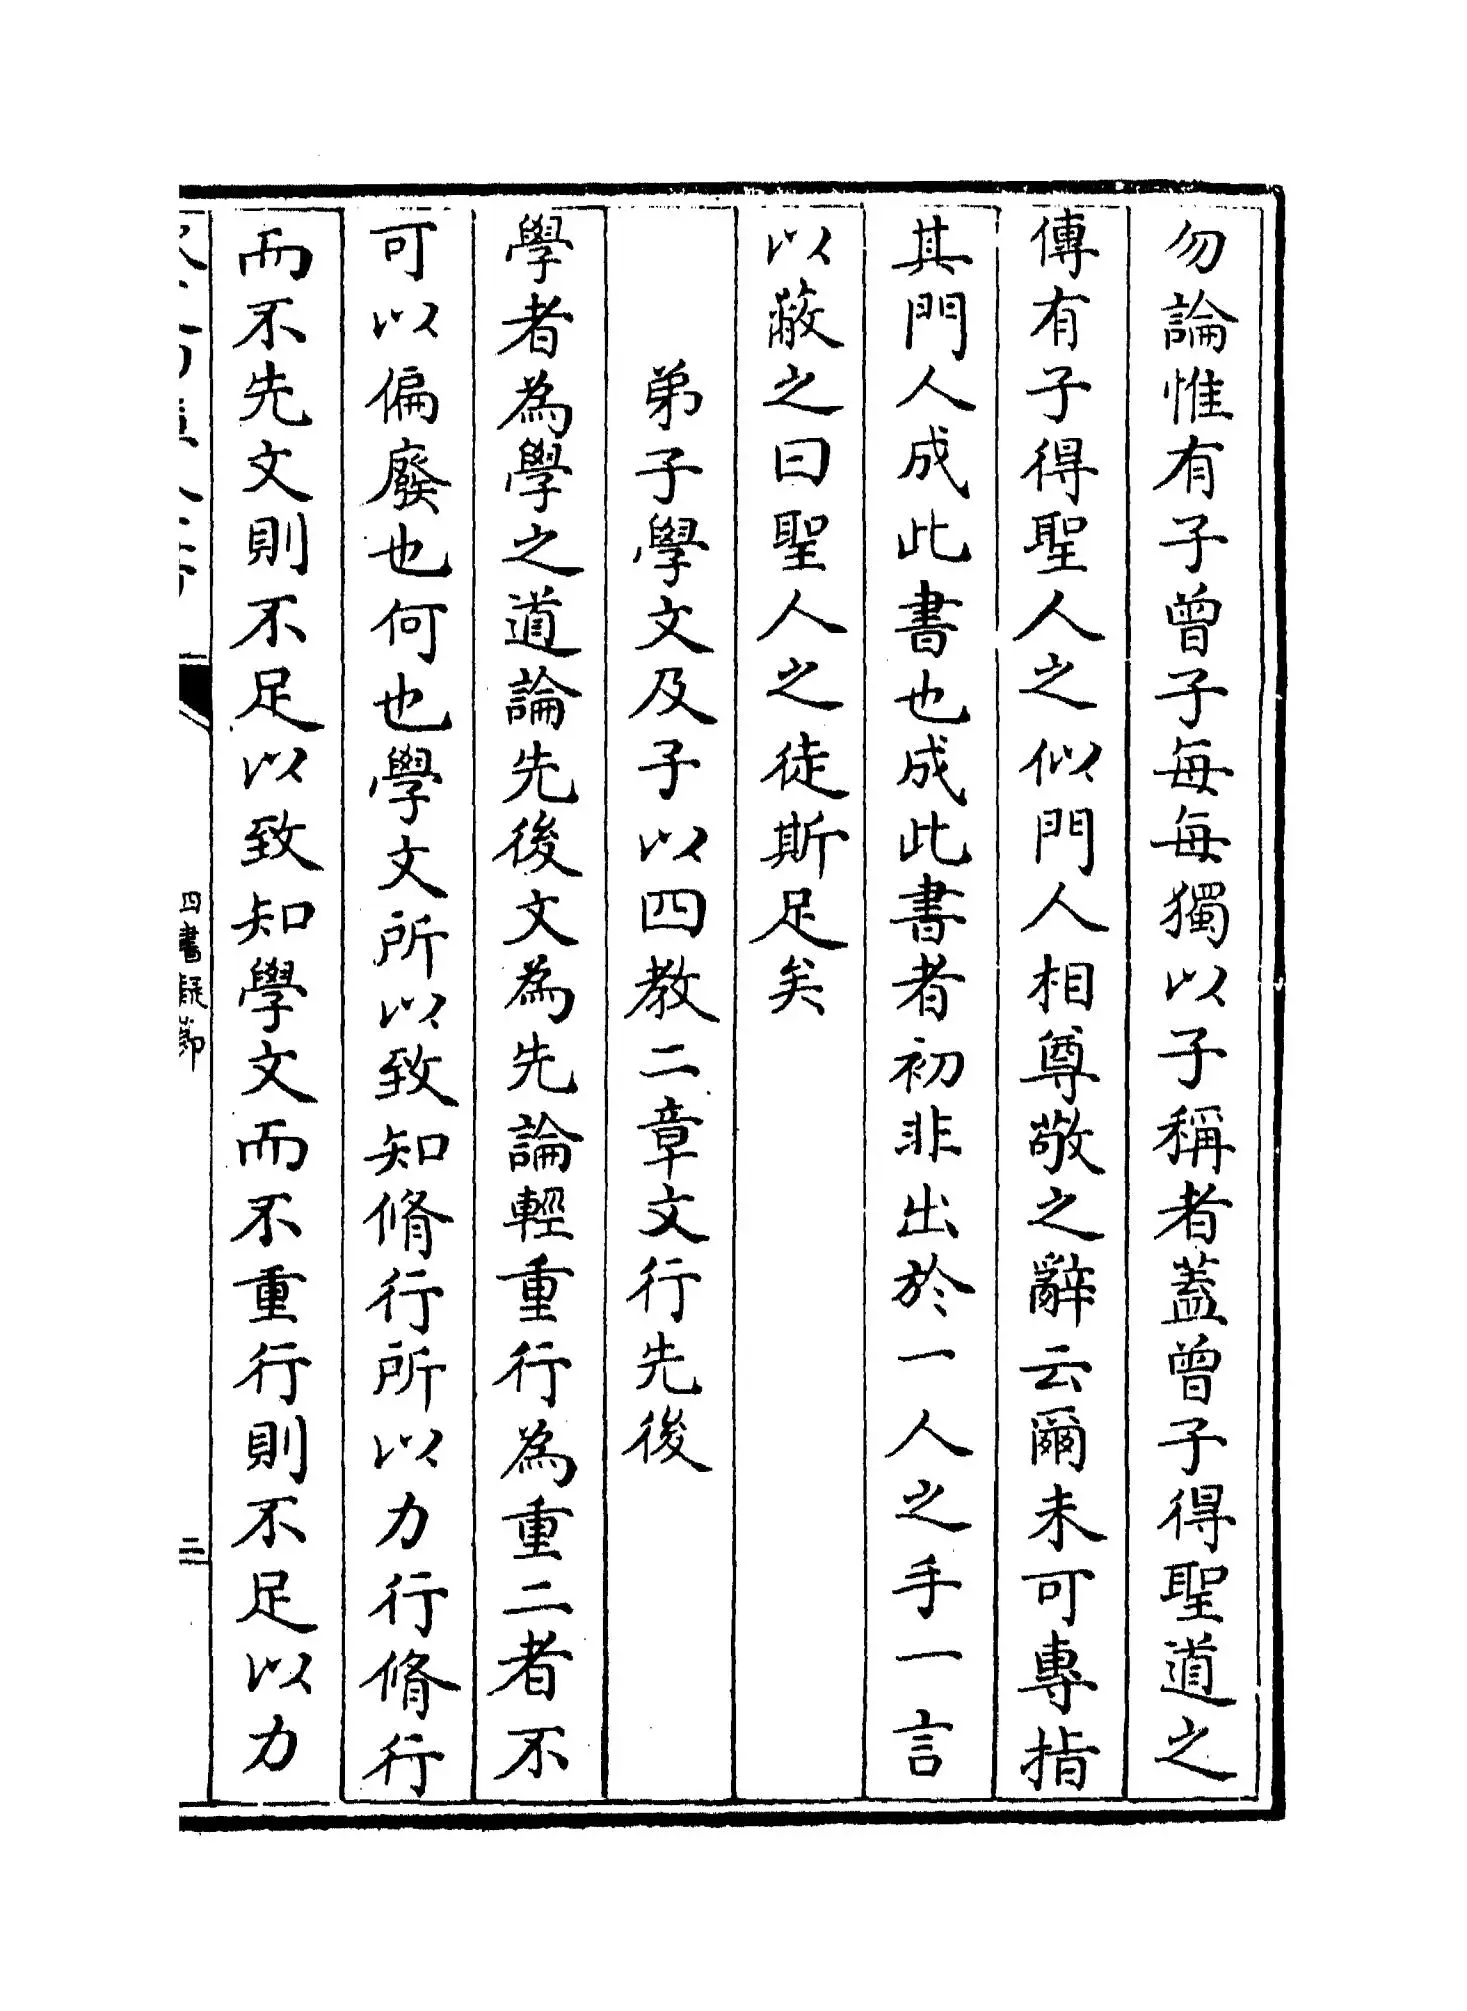 勿論惟有子曾子每每獨以子稱者蓋曾子得聖道之
傳有子得聖人之似門人相尊敬之辭云爾未可專指
其門人成此書也成此書者初非出於一人之手一言
以蔽之曰聖人之徒斯足矣
弟子學文及子以四教二章文行先後
學者為學之道論先後文為先論輕重行為重二者不
可以偏廢也何也學文所以致知脩行所以力行脩行
而不先文則不足以致知學文而不重行則不足以力
四書疑節
二